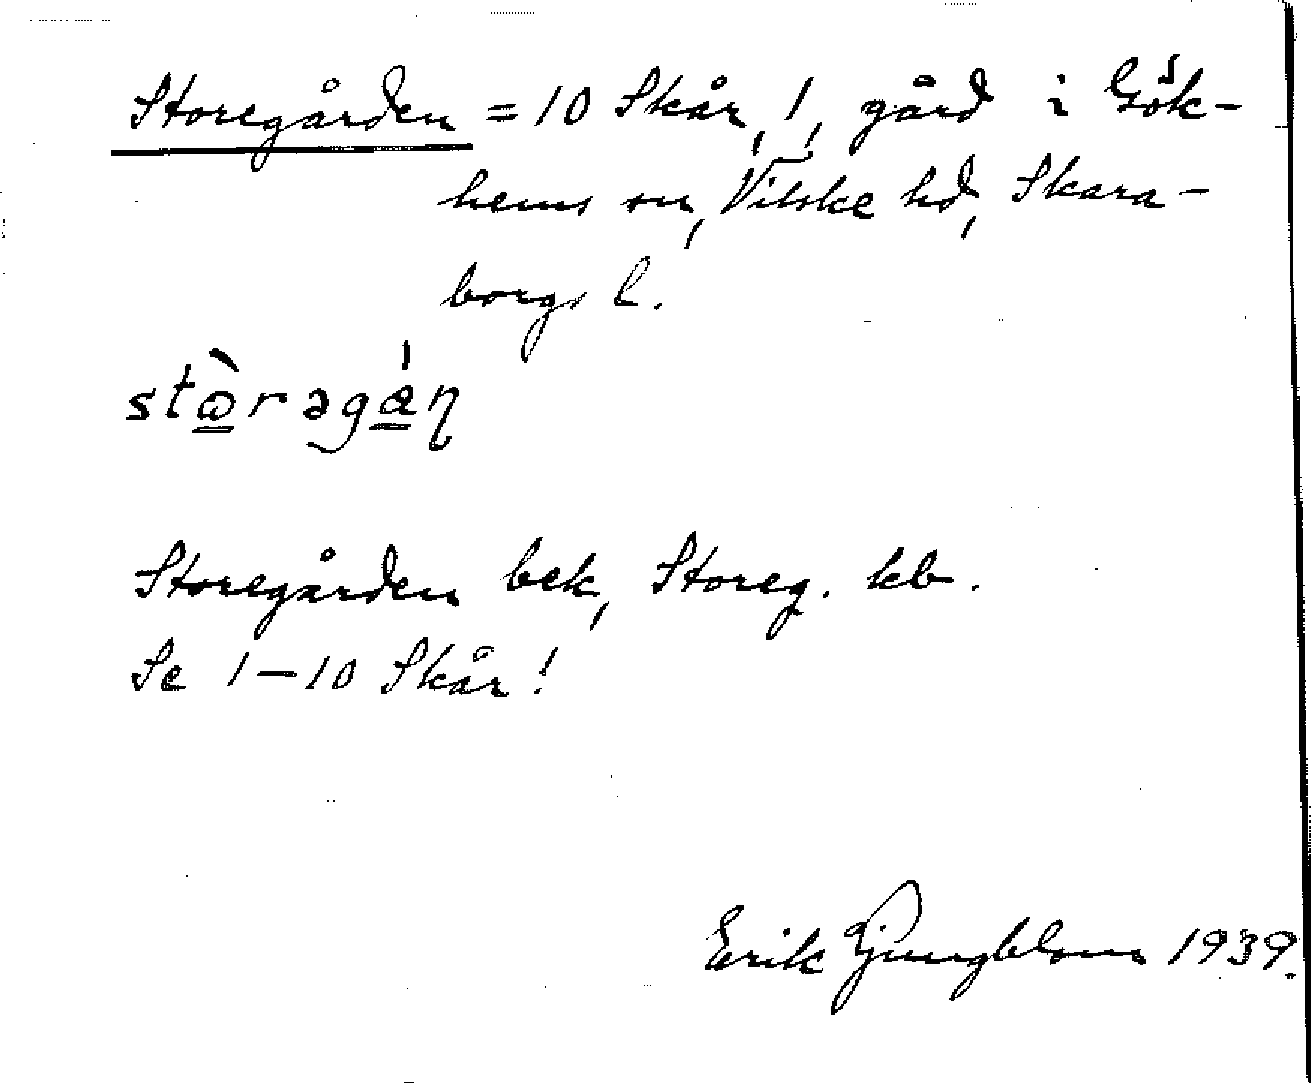 Storegården = 10 Skår, 1, gård i Gök-
hems sn, Vilske hd, Skara-
borgs l.
stꞷ̀rəgán
Storegården bek, Storeg. kb.
Se 1–10 Skår!
Erik Ljungblom 1939.